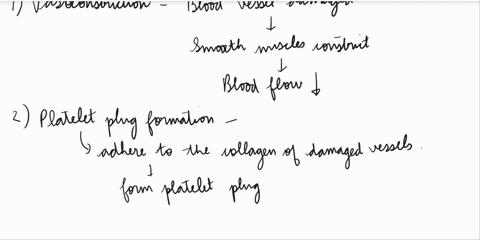 1) Vasoconstriction - Blood vessel damaged
↓
Smooth muscles constrict
↓
Blood flow ↓
2) Platelet plug formation -
↳ adhere to the collagen of damaged vessels.
↓
form platelet plug